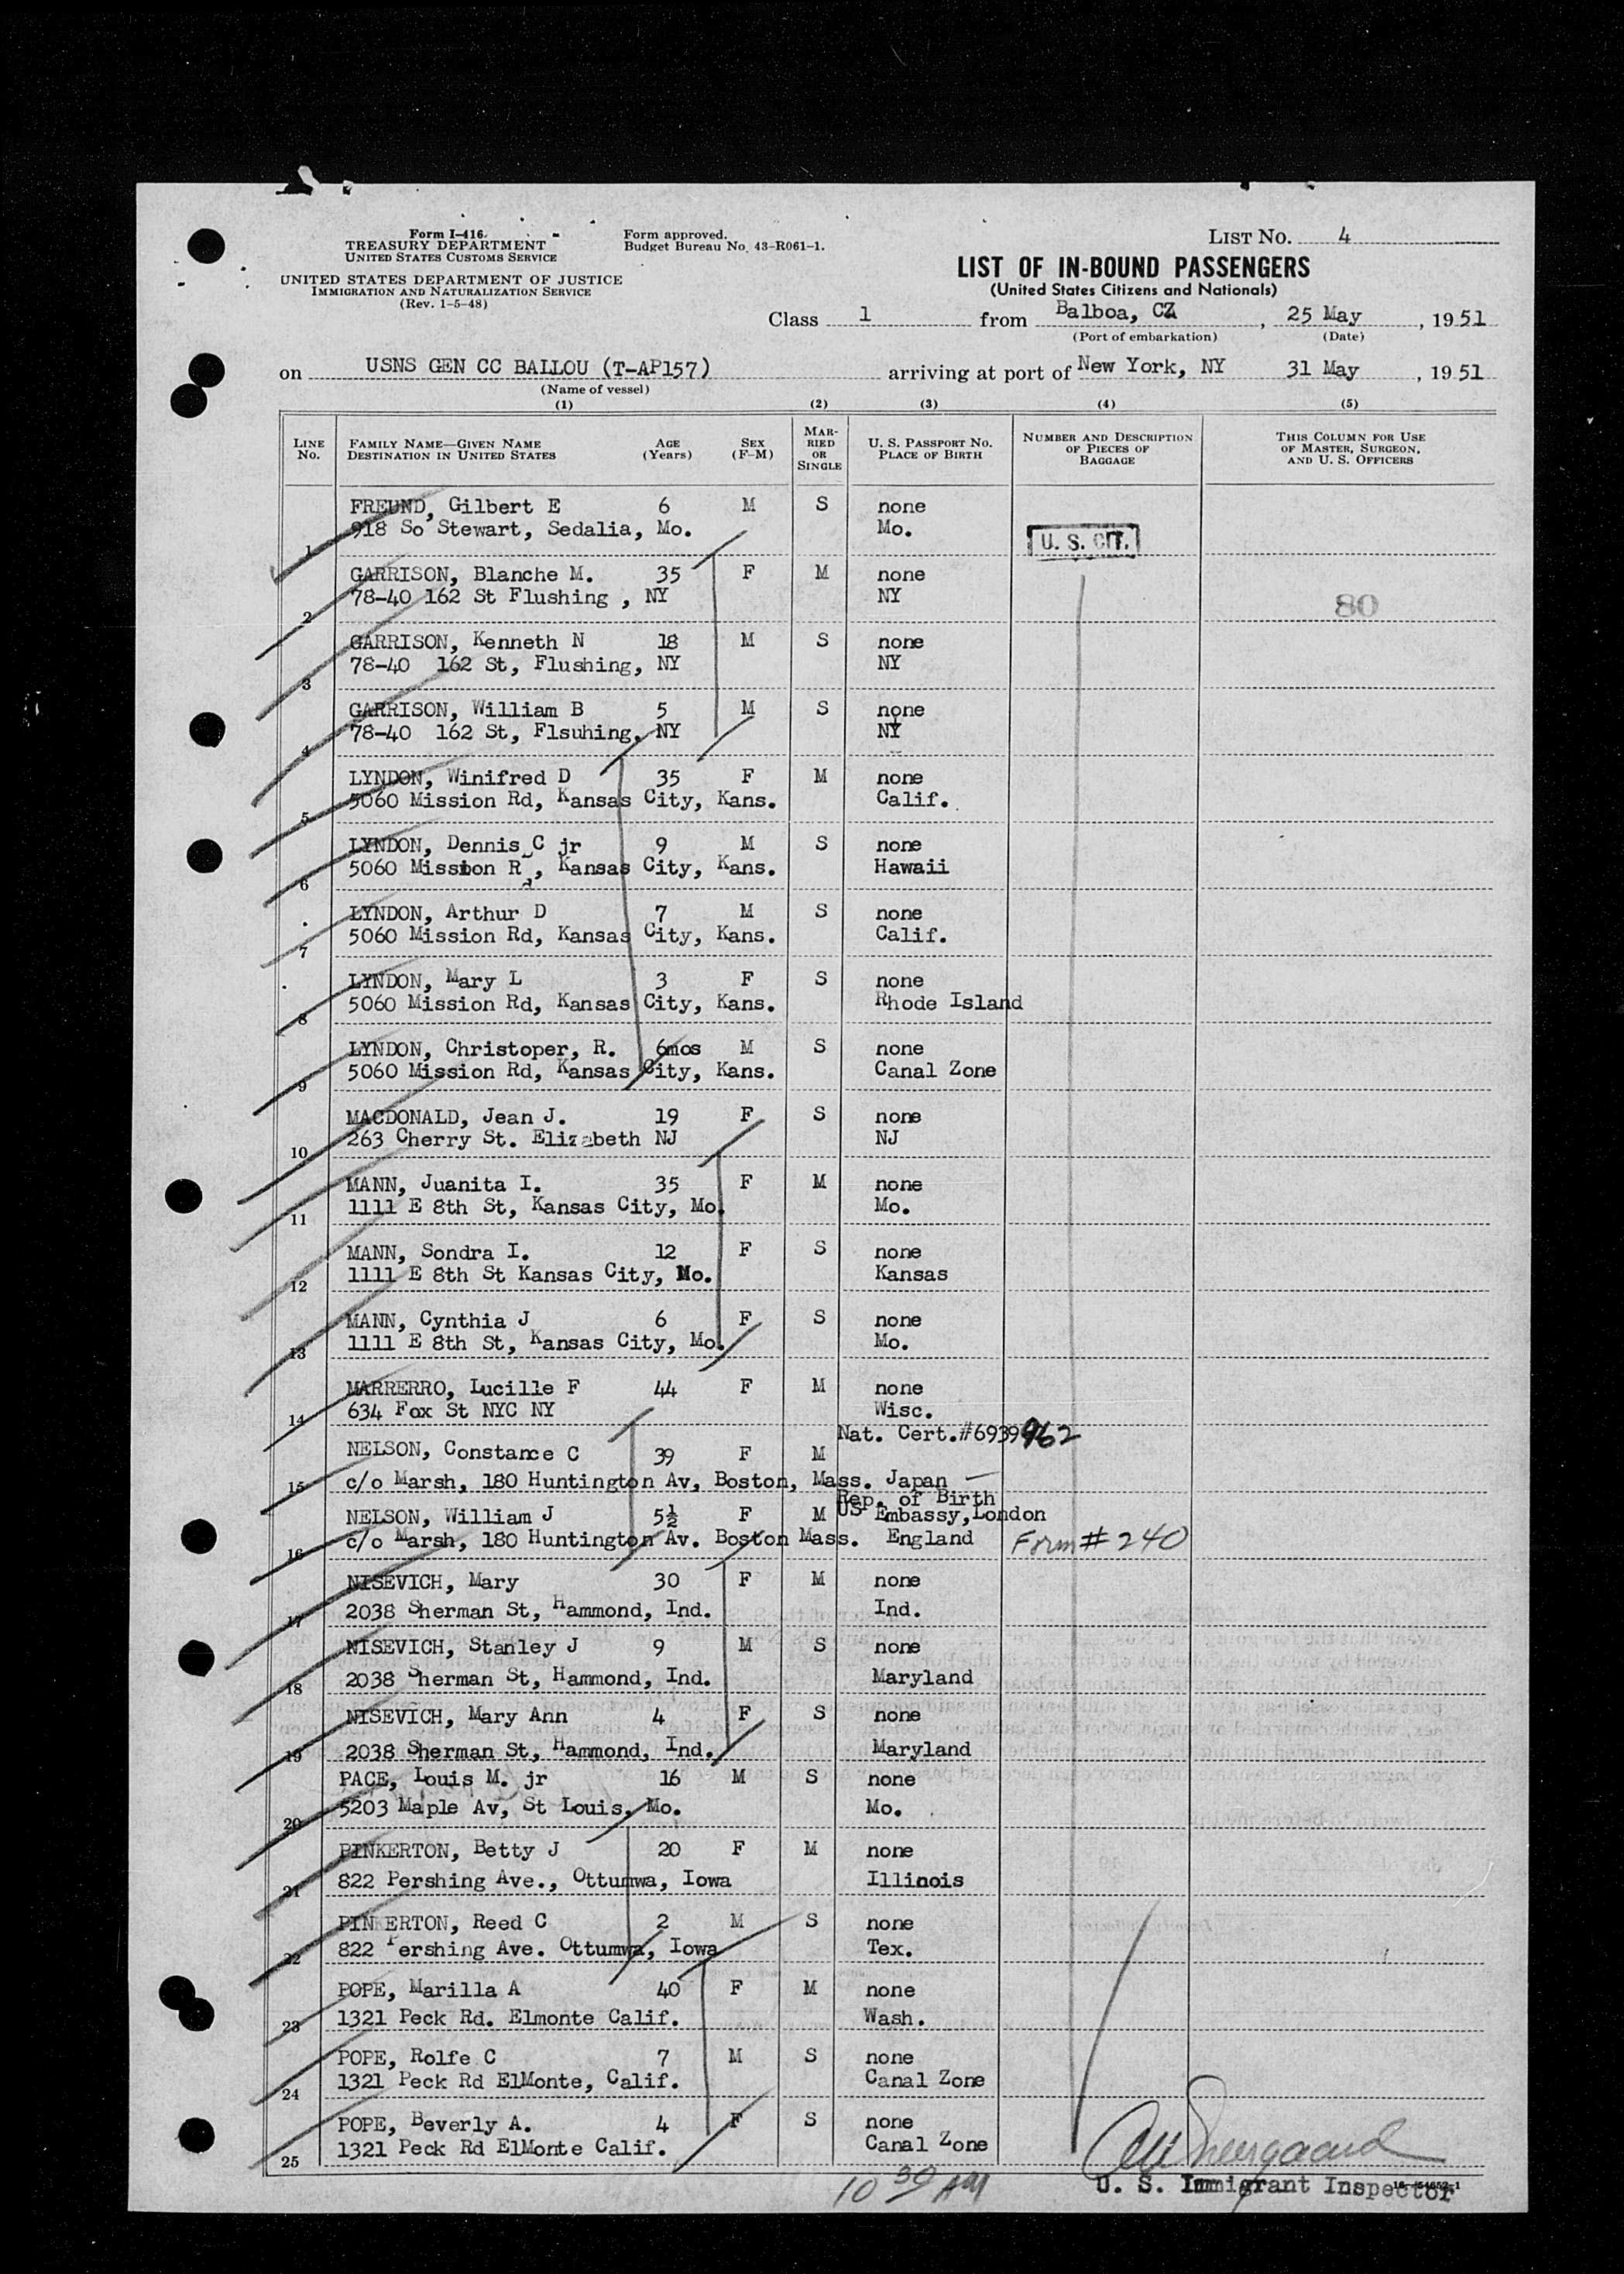 Form I-416
TREASURY DEPARTMENT
UNITED STATES CUSTOMS SERVICE
UNITED STATES DEPARTMENT OF JUSTICE
IMMIGRATION AND NATURALIZATION SERVICE
(Rev. 1-5-48)
Form approved.
Budget Bureau No. 43-R061-1.
LIST No. 4
LIST OF IN-BOUND PASSENGERS
(United States Citizens and Nationals)
Class 1 from Balboa, CZ, 25 May, 1951
(Port of embarkation) (Date)
on USNS GEN CC BALLOU (T-AP157) arriving at port of New York, NY 31 May, 1951
(Name of vessel)
(1) (2) (3) (4) (5)
LINE No. FAMILY NAME—GIVEN NAME DESTINATION IN UNITED STATES AGE (Years) SEX (F-M) MARRIED OR SINGLE U. S. PASSPORT NO. PLACE OF BIRTH NUMBER AND DESCRIPTION OF PIECES OF BAGGAGE THIS COLUMN FOR USE OF MASTER, SURGEON, AND U. S. OFFICERS
FREUND, Gilbert E 6 M S none
1 918 So Stewart, Sedalia, Mo. Mo. U. S. CIT.
GARRISON, Blanche M. 35 F M none
2 78-40 162 St Flushing , NY NY 80
GARRISON, Kenneth N 18 M S none
3 78-40 162 St, Flushing, NY NY
GARRISON, William B 5 M S none
4 78-40 162 St, Flsuhing, NY NY
LYNDON, Winifred D 35 F M none
5 5060 Mission Rd, Kansas City, Kans. Calif.
LYNDON, Dennis C jr 9 M S none
6 5060 Mission Rd, Kansas City, Kans. Hawaii
LYNDON, Arthur D 7 M S none
7 5060 Mission Rd, Kansas City, Kans. Calif.
LYNDON, Mary L 3 F S none
8 5060 Mission Rd, Kansas City, Kans. Rhode Island
LYNDON, Christoper, R. 6mos M S none
9 5060 Mission Rd, Kansas City, Kans. Canal Zone
MACDONALD, Jean J. 19 F S none
10 263 Cherry St. Elizabeth NJ NJ
MANN, Juanita I. 35 F M none
11 1111 E 8th St, Kansas City, Mo. Mo.
MANN, Sondra I. 12 F S none
12 1111 E 8th St Kansas City, Mo. Kansas
MANN, Cynthia J 6 F S none
13 1111 E 8th St, Kansas City, Mo. Mo.
MARRERRO, Lucille F 44 F M none
14 634 Fox St NYC NY Wisc.
Nat. Cert.#6939962
NELSON, Constance C 39 F M
15 c/o Marsh, 180 Huntington Av, Boston, Mass. Japan —
Rep. of Birth
NELSON, William J 5½ F M US Embassy, London
16 c/o Marsh, 180 Huntington Av. Boston Mass. England Form # 240
NISEVICH, Mary 30 F M none
17 2038 Sherman St, Hammond, Ind. Ind.
NISEVICH, Stanley J 9 M S none
18 2038 Sherman St, Hammond, Ind. Maryland
NISEVICH, Mary Ann 4 F S none
19 2038 Sherman St, Hammond, Ind. Maryland
PACE, Louis M. jr 16 M S none
20 5203 Maple Av, St Louis, Mo. Mo.
PINKERTON, Betty J 20 F M none
21 822 Pershing Ave., Ottumwa, Iowa Illinois
PIN ERTON, Reed C 2 M S none
22 822 Pershing Ave. Ottumwa, Iowa Tex.
POPE, Marilla A 40 F M none
23 1321 Peck Rd. Elmonte Calif. Wash.
POPE, Rolfe C 7 M S none
24 1321 Peck Rd ElMonte, Calif. Canal Zone
POPE, Beverly A. 4 F S none
25 1321 Peck Rd ElMonte Calif. Canal Zone
10 30 AM
U. S. Immigrant Inspector